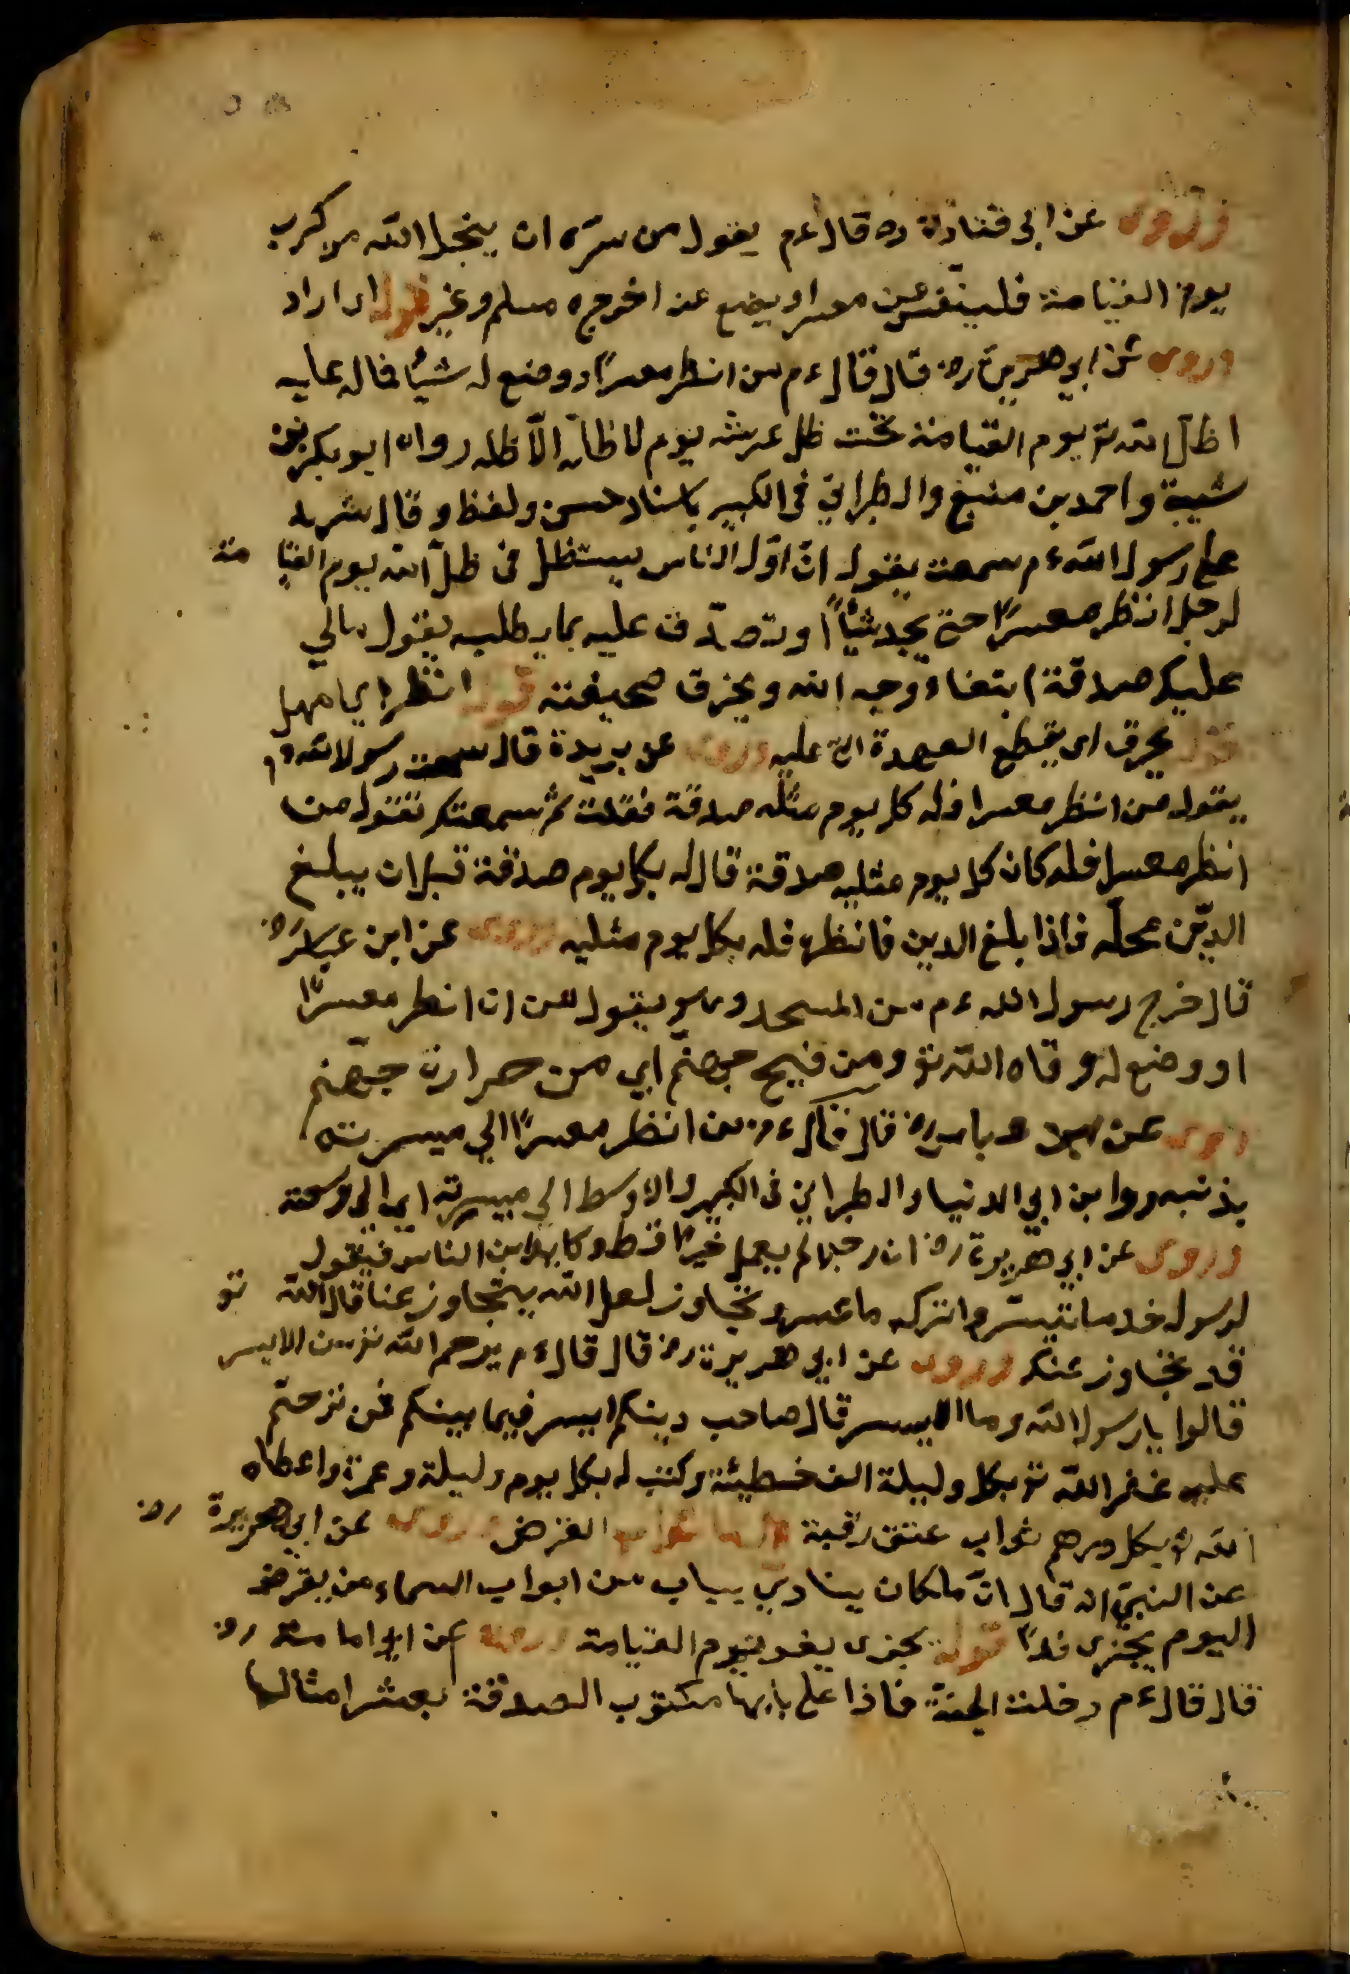 وروى عن ابى قتادة ره قال عم يقول من سرّه ان ينجيه الله من كرب
يوم القيامة فلينفّس عن معسر او يضع عنه اخرجه مسلم وغيره قوله اراد
وروى عن ابي هريرة رض قال قال عم من انظر معسرًا او وضع له شيئًا فماله عليه
اظلّ الله تو يوم القيامة تحت ظل عرشه يوم لا ظلّ الّا ظله رواه ابو بكر بن
شيبة واحمد بن منيع والطبراني فى الكبير باسناد حسن ولفظ وقال شهد
على رسول الله عم سمعت يقول انّ اوّل الناس يستظل فى ظلّ الله يوم القيا مة
لرجل انظر معسرًا حتى يجد شيئًا او تصدّق عليه بما يطلبه يقول مالي
عليك صدقة ابتغاء وجه الله ويخرق صحيفته قوله انظر اي امهل
قوله يخرق اى يقطع العهدة التى عليه وروى عن بريدة قال سمعت رسول الله عم
يقول من انظر معسرا فله كل يوم مثله صدقة فقلت ثم سمعتك تقول من
انظر معسرا فله كان كل يوم مثليه صدقة قال له بكل يوم صدقة قبل ان يبلغ
الديّن محلّه فاذا بلغ الدين فانظره فله بكل يوم مثليه وروى عن ابن عباس رض
قال خرج رسول الله عم من المسجد وهو يقول من ان انظر معسرًا
او وضع له وقاه الله تو ومن فيح جهنّم اي من حرارة جهنم
روى عن ابن عباس رض قال قال عم من انظر معسرًا الى ميسرته
بذنبه رواه ابن ابي الدنيا والطبراني فى الكبير والاوسط الي ميسرته اي الي وسعته
وروى عن ابي هريرة رض ان رجلا لم يعمل خيرًا قط وكان يداين الناس فيقول
لرسوله خذ ما تيسّر واترك ما عسر وتجاوز لعل الله يتجاوز عنا قال الله تو
قد تجاوز عنك وروى عن ابي هريرة رض قال قال عم يرحم الله تو من الايسر
قالوا يا رسول الله وما الايسر قال صاحب دينكم ايسر فيما بينكم فمن ترحّم
عليه غفر الله تو بكل وليلة الف خطيئة وكتب له بكل يوم وليلة وعمرة واعطاه
الله تو بكل درهم ثواب عتق رقبة القرض وروى عن ابي هريرة رض
عن النبيّ انه قال انّ ملكا كان ينادي بباب من ابواب السماء من يقرض
اليوم يجزى غدًا قوله يجزى يعنى يوم القيامة وروى عن ابي امامة رض
قال قال عم دخلت الجنة فاذا على بابها مكتوب الصدقة بعشر امثالها